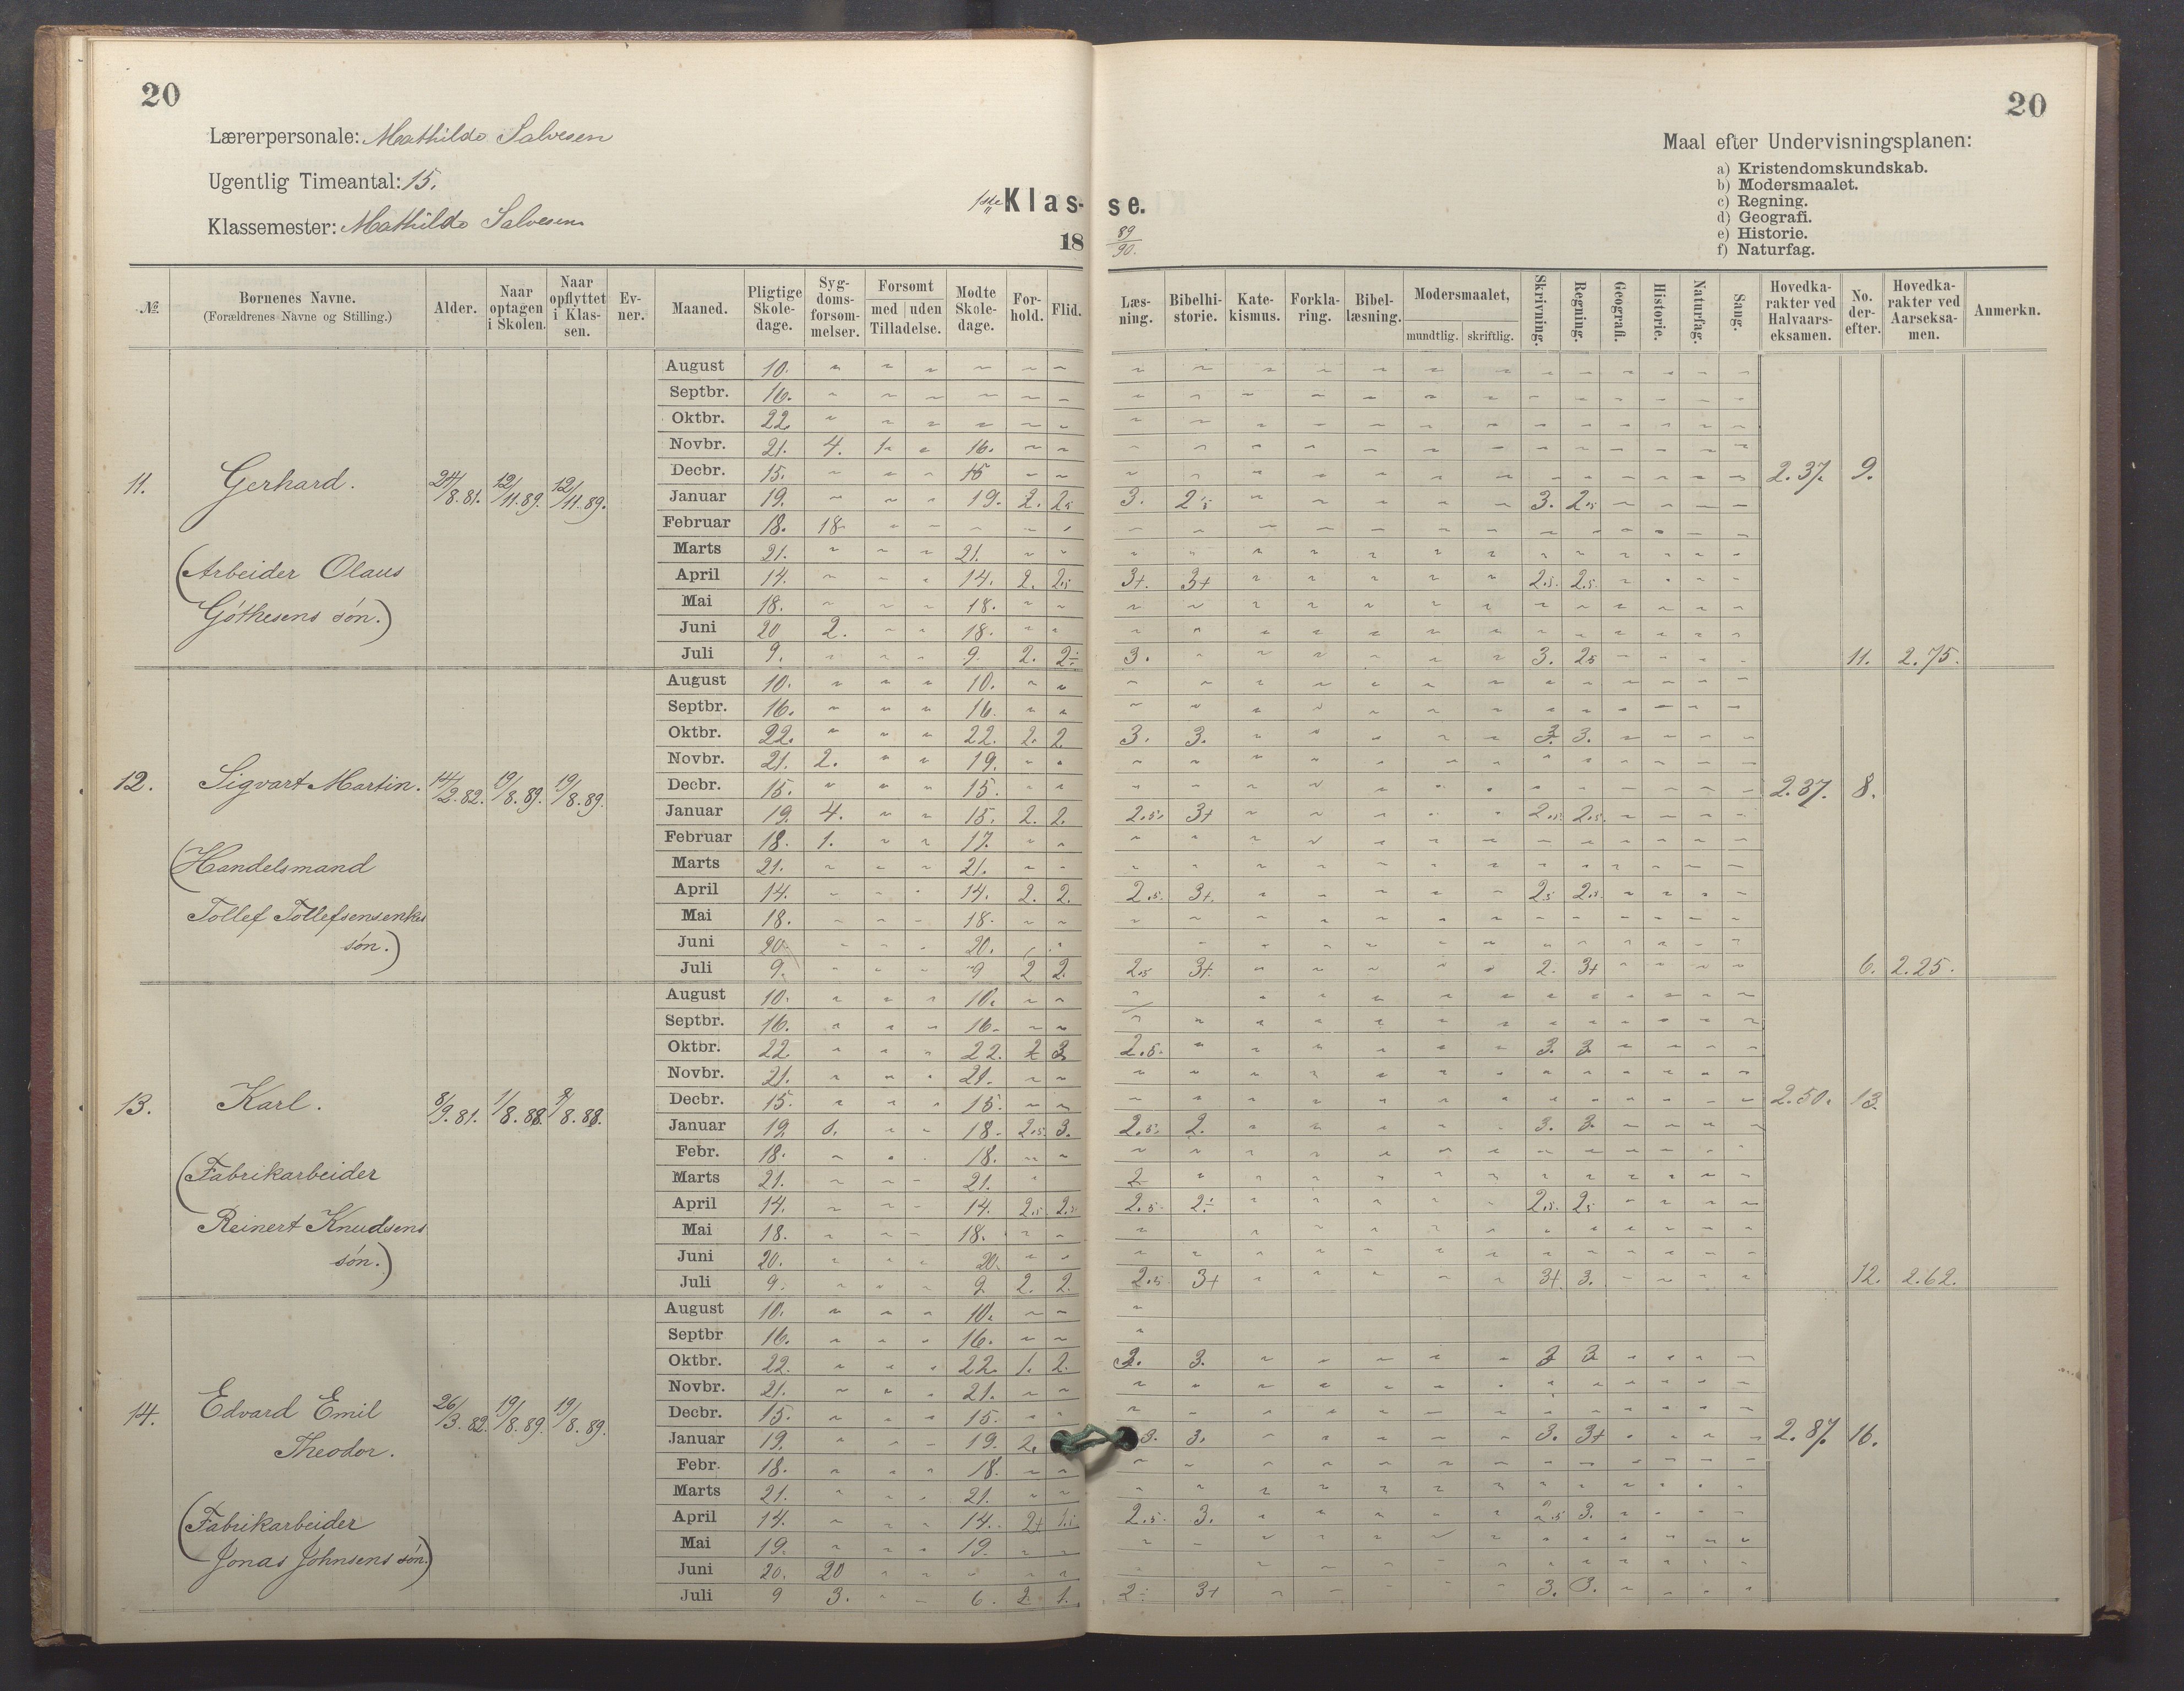 20
Lærerpersonale: Mathilde Salvesen
Ugentlig Timeantal: 15.
Klassemester: Mathilde Salvesen
1ste Klas-
18
20
Maal efter Undervisningsplanen:
a) Kristendomskundskab.
b) Modersmaalet.
c) Regning.
d) Geografi.
e) Historie.
f) Naturfag.
se.
89/90.
№ Børnenes Navne. (Forældrenes Navne og Stilling.) Alder. Naar optagen i Skolen. Naar opflyttet i Klassen. Evner. Maaned. Pligtige Skoledage. Sygdomsforsømmelser. Forsømt med uden Tilladelse. Mødte Skoledage. Forhold. Flid.
Læsning. Bibelhistorie. Katekismus. Forklaring. Bibellæsning. Modersmaalet, mundtlig. skriftlig. Skrivning. Regning. Geografi. Historie. Naturfag. Sang. Hovedkarakter ved Halvaarseksamen. No. derefter. Hovedkarakter ved Aarseksamen. Anmerkn.
11. Gerhard. 24/8.81. 12/11.89. 12/11.89. 2.37. 9.
(Arbeider Olaus
Góthesens són.)
August 10.
Septbr. 16.
Oktbr. 22
Novbr. 21. 4. 1. 16.
Decbr. 15. 15
Januar 19. 19. 2. 2.5 3. 2.5 3. 2.5
Februar 18. 18
Marts 21. 21.
April 14. 14. 2. 2.5 3+. 3+ 2.5. 2.5.
Mai 18. 18.
Juni 20 2. 18.
Juli 9. 9. 2. 2÷ 3. 3. 2.5 11. 2.75.
12. Sigvart Martin. 14/12.82. 19/8.89. 19/8.89. 2.37. 8.
(Handelsmand
Tollef Tollefsensenkes
són.)
August 10. 10.
Septbr. 16. 16.
Oktbr. 22. 22. 2. 2. 3. 3. 3. 3.
Novbr. 21. 2. 19.
Decbr. 15. 15.
Januar 19. 4. 15. 2. 2. 2.5. 3+ 2.5. 2.5.
Februar 18. 1. 17.
Marts 21. 21.
April 14. 14. 2. 2. 2.5. 3+. 2.5 2.5.
Mai 18. 18.
Juni 20. 20.
Juli 9. 9 2 2. 2.5 3+. 2. 3+ 6. 2.25.
13. Karl. 8/9.81. 1/8.88. 8.88. 2.50. 13.
(Fabrikarbeider
Reinert Knudsens
són.)
August 10. 10.
Septbr. 16. 16.
Oktbr. 22 22. 2 3 2.5. 3. 3
Novbr. 21. 21.
Decbr. 15. 15.
Januar 19. 1. 18. 2.5. 3. 2.5. 2. 3. 3.
Febr. 18. 18.
Marts 21. 21. 2
April 14. 14. 2.5. 2.5. 2.5. 2÷ 2.5. 2.5
Mai 18. 18.
Juni 20. 20.
Juli 9. 9. 2. 2. 2.5. 3+ 3+. 3. 12. 2.62.
14. Edvard Emil 26/3.82. 19/8.89. 19/8.89. 2.87. 16.
Theodor.
(Fabrikarbeider
Jonas Johnsens són.)
August 10. 10.
Septbr 16. 16.
Oktbr. 22. 22. 1. 2. 2. 3. 3 3
Novbr. 21. 21.
Decbr. 15. 15.
Januar 19. 19. 2. 3. 3. 3. 3+
Febr. 18. 18.
Marts 21. 21.
April 14. 14. 2+ 1.5 2.5. 3. 2.5 3.
Mai 19. 19.
Juni 20. 20
Juli 9 3. 6. 2 1. 2÷ 3+ 3. 3.